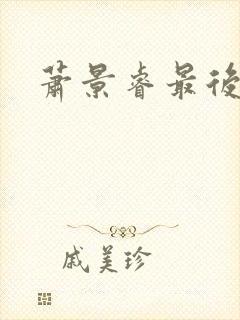 萧景睿最後
戚美珍